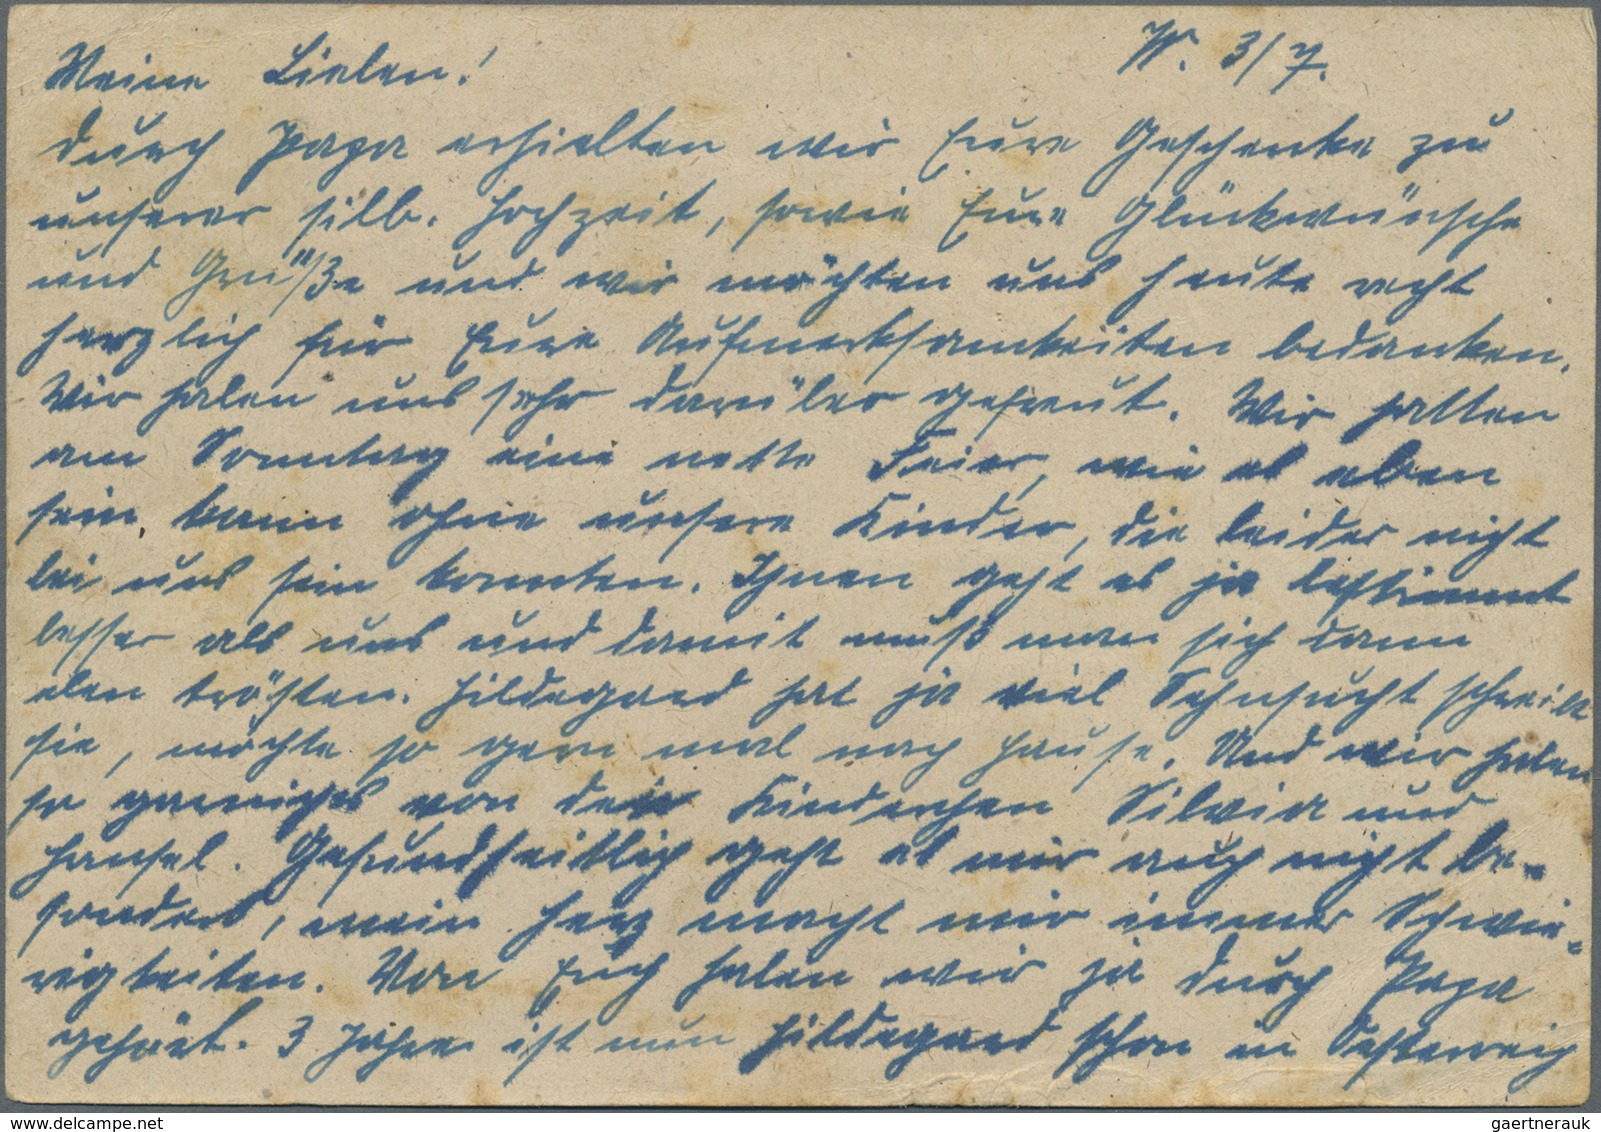 Meine Lieben! W. 3/7.
durch Papa erhielten wir Eure Geschenke zu
unserer silb. Hochzeit, sowie Eure Glückwünsche
und Grüße und wir möchten uns heute recht
herzlich für Eure Aufmerksamkeiten bedanken.
Wir haben uns sehr darüber gefreut. Wir hatten
am Sonntag eine nette Feier, wie es eben
sein kann ohne unsere Kinder, die leider nicht
bei uns sein konnten. Ihnen geht es ja bestimmt
besser als uns und damit muß man sich dann
eben trösten. Hildegard hat ja viel Sehnsucht schreibt
sie, möchte so gern mal nach Hause. Und wir haben
so von den Kinderchen Silvia und
Hansel. Gesundheitlich geht es mir auch nicht be-
sonders, mein Herz macht mir immer Schwie-
rigkeiten. Von Euch haben wir ja durch Papa
gehört. 3 Jahre ist nun Hildegard schon in Oesterreich
gaertnerauk